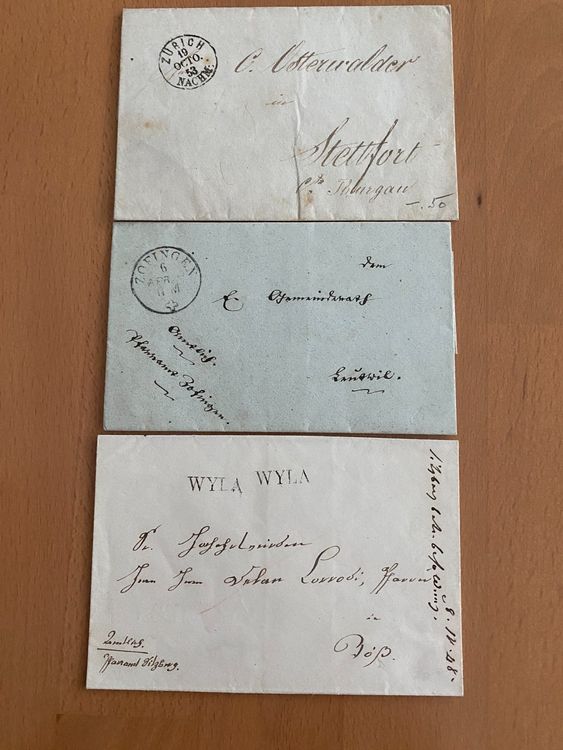 ZÜRICH
19
OCTO.
53
NACHM.
C. Osterwalder
in
Stettfort
Ct. Thurgau
-.50
ZOFINGEN
6
dem
E. Gemeinderath
Leutwil.
Amtlich.
Pfarramt Zofingen.
WYLA WYLA
Sr. Hochehrwürden
Herrn Herrn Dekan Corrodi, Pfarrer
in
Töß.
Amtlich.
Pfarramt Sitzberg.
8. 12. 48.